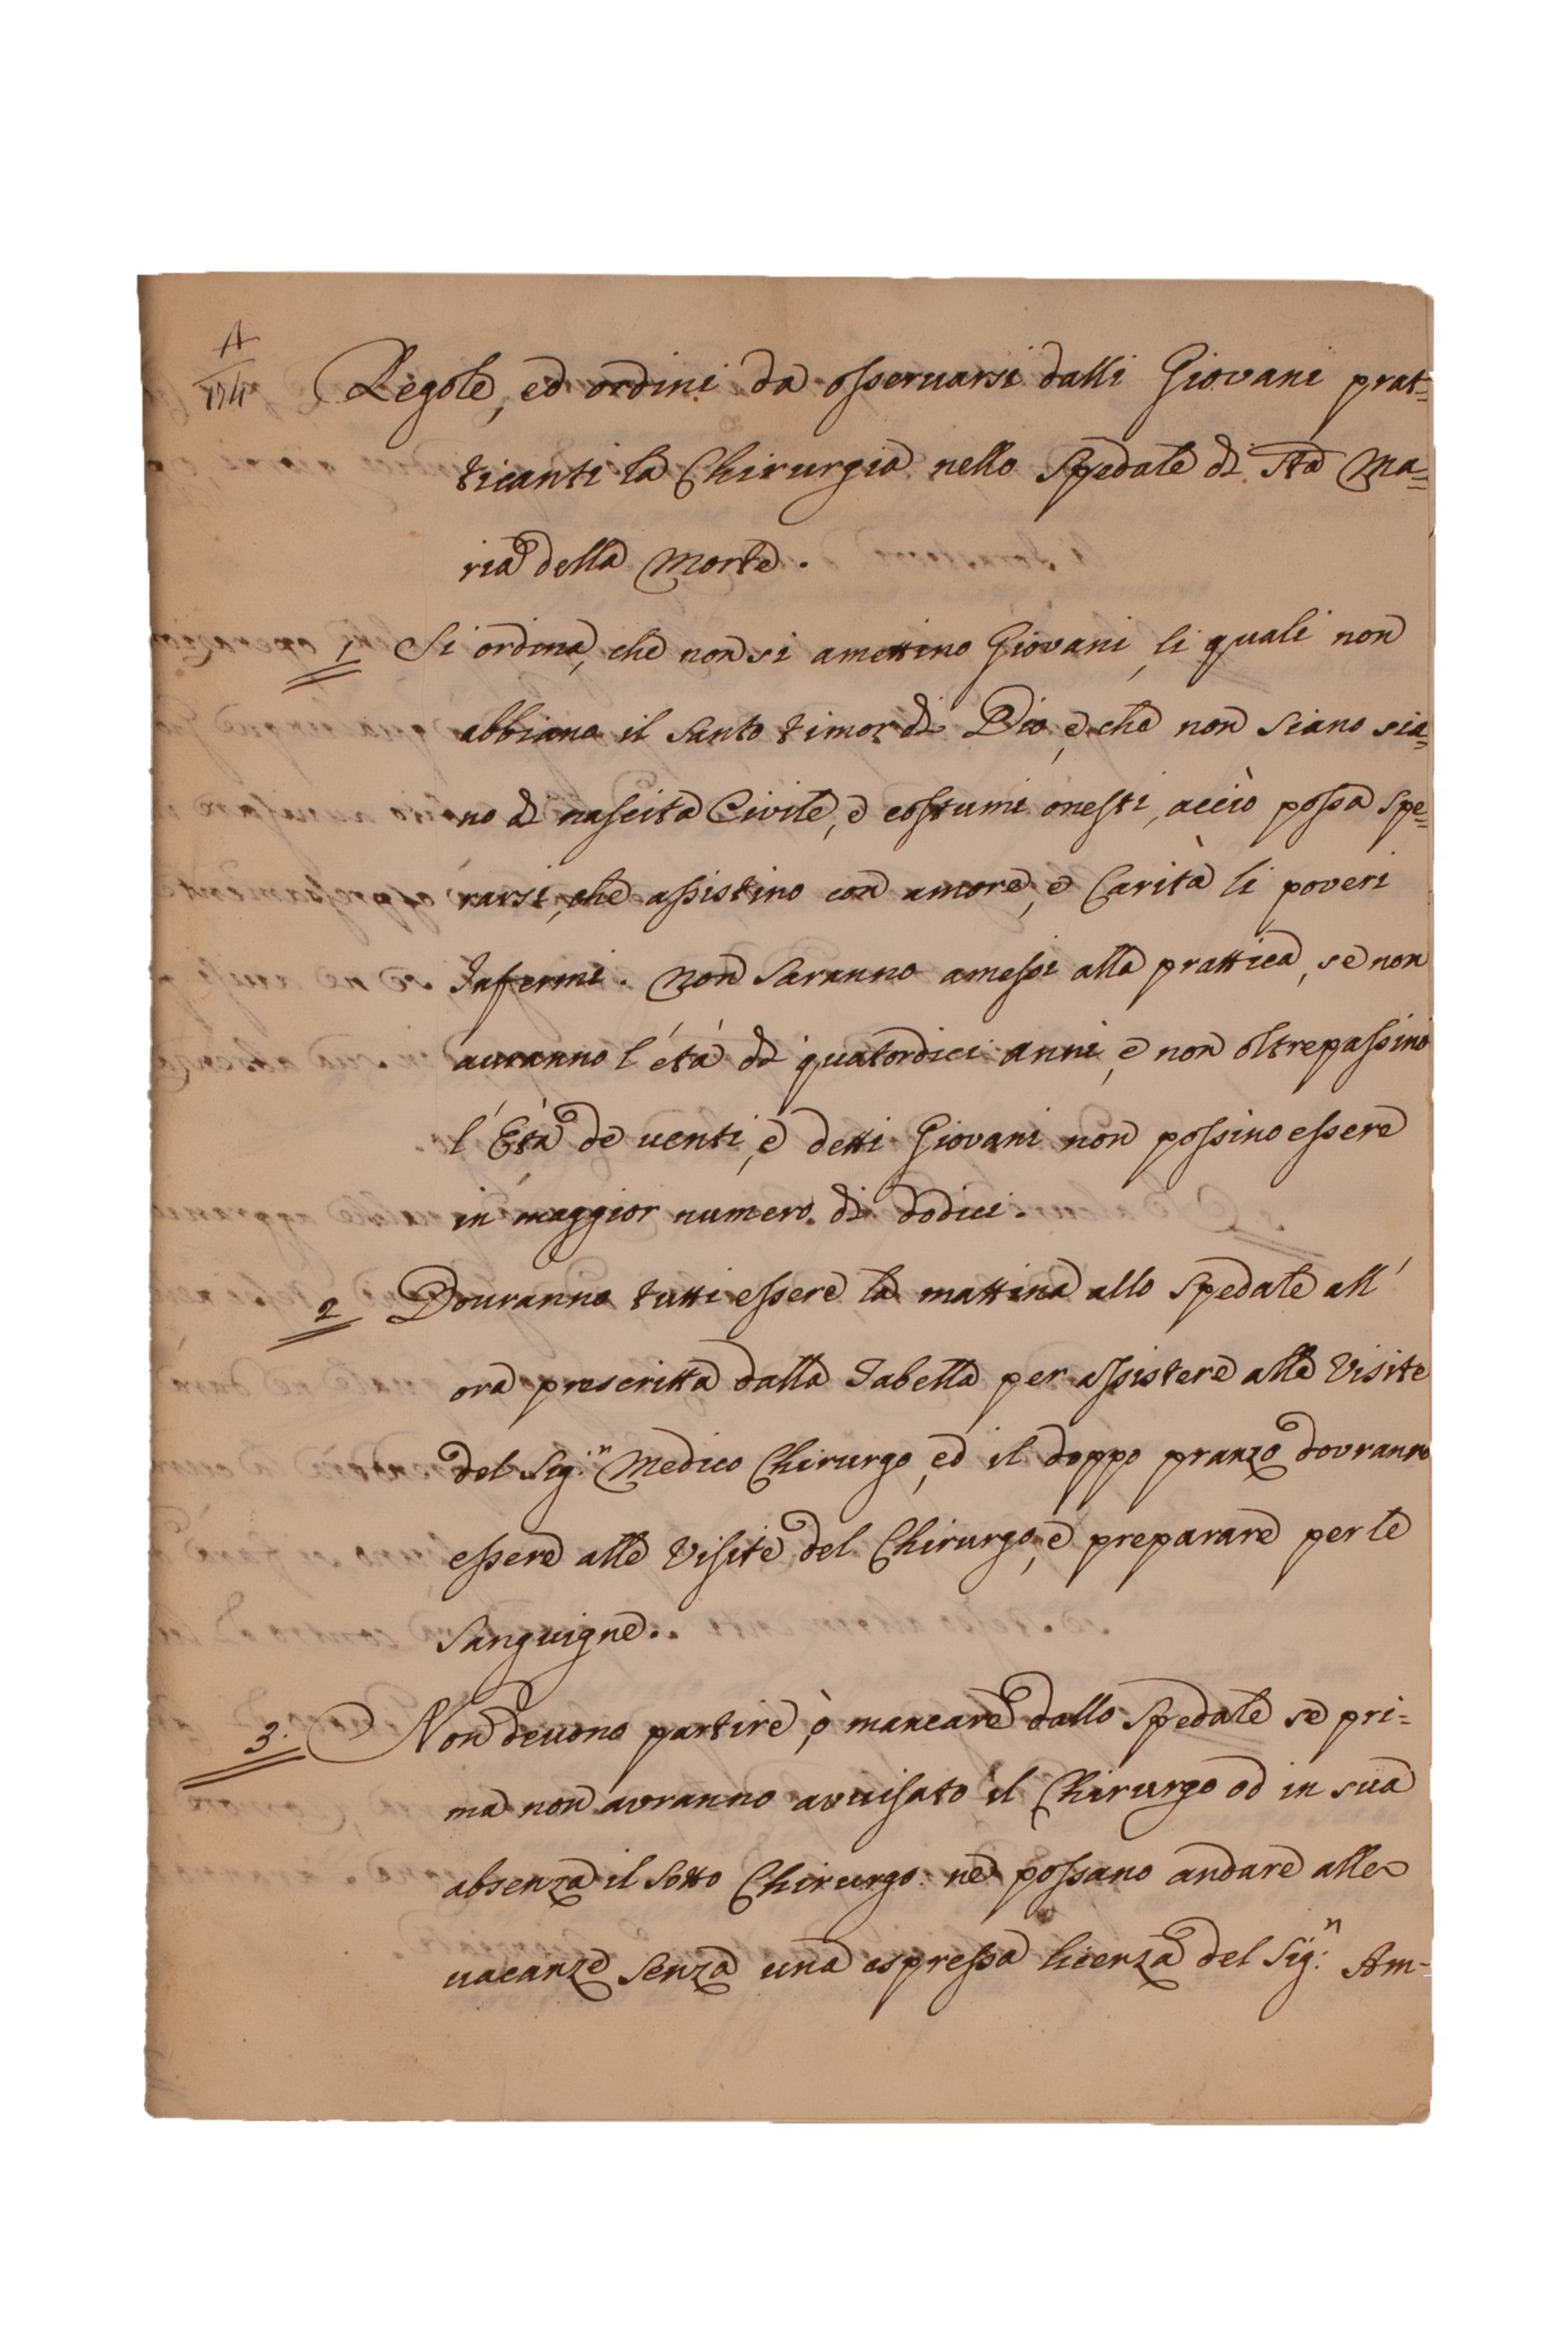 A
Regole, ed ordini da osseruarsi dalli Giovani prat=
ticanti la Chirurgia nello Spedale di Sta Ma=
ria della Morte.
1 Si ordina, che non si amettino Giovani, li quali non
abbiano il Santo timor di Dio, e che non siano sia=
no di nascita Civile, e costumi onesti, acciò possa spe=
rarsi, che assistino con amore, e Carità li poveri
Infermi. Non saranno amessi alla prattica, se non
auranno l'età di quatordici anni, e non oltrepassino
l'Età de uenti, e detti Giovani non possino essere
in maggior numero di dodici.
2 Douranno tutti essere la mattina allo Spedale all'
ora prescritta dalla Tabella per assistere alle Visite
del Sig.n Medico Chirurgo, ed il doppo pranzo dovranno
essere alle Visite del Chirurgo, e preparare per le
Sanguigne.
3. Non deuono partire, ò mancare dallo Spedale se pri=
ma non avranno avuisato il Chirurgo od in sua
absenza il Sotto Chirurgo: ne possano andare alle
uacanze senza una espressa licenza del Sig.n Am-